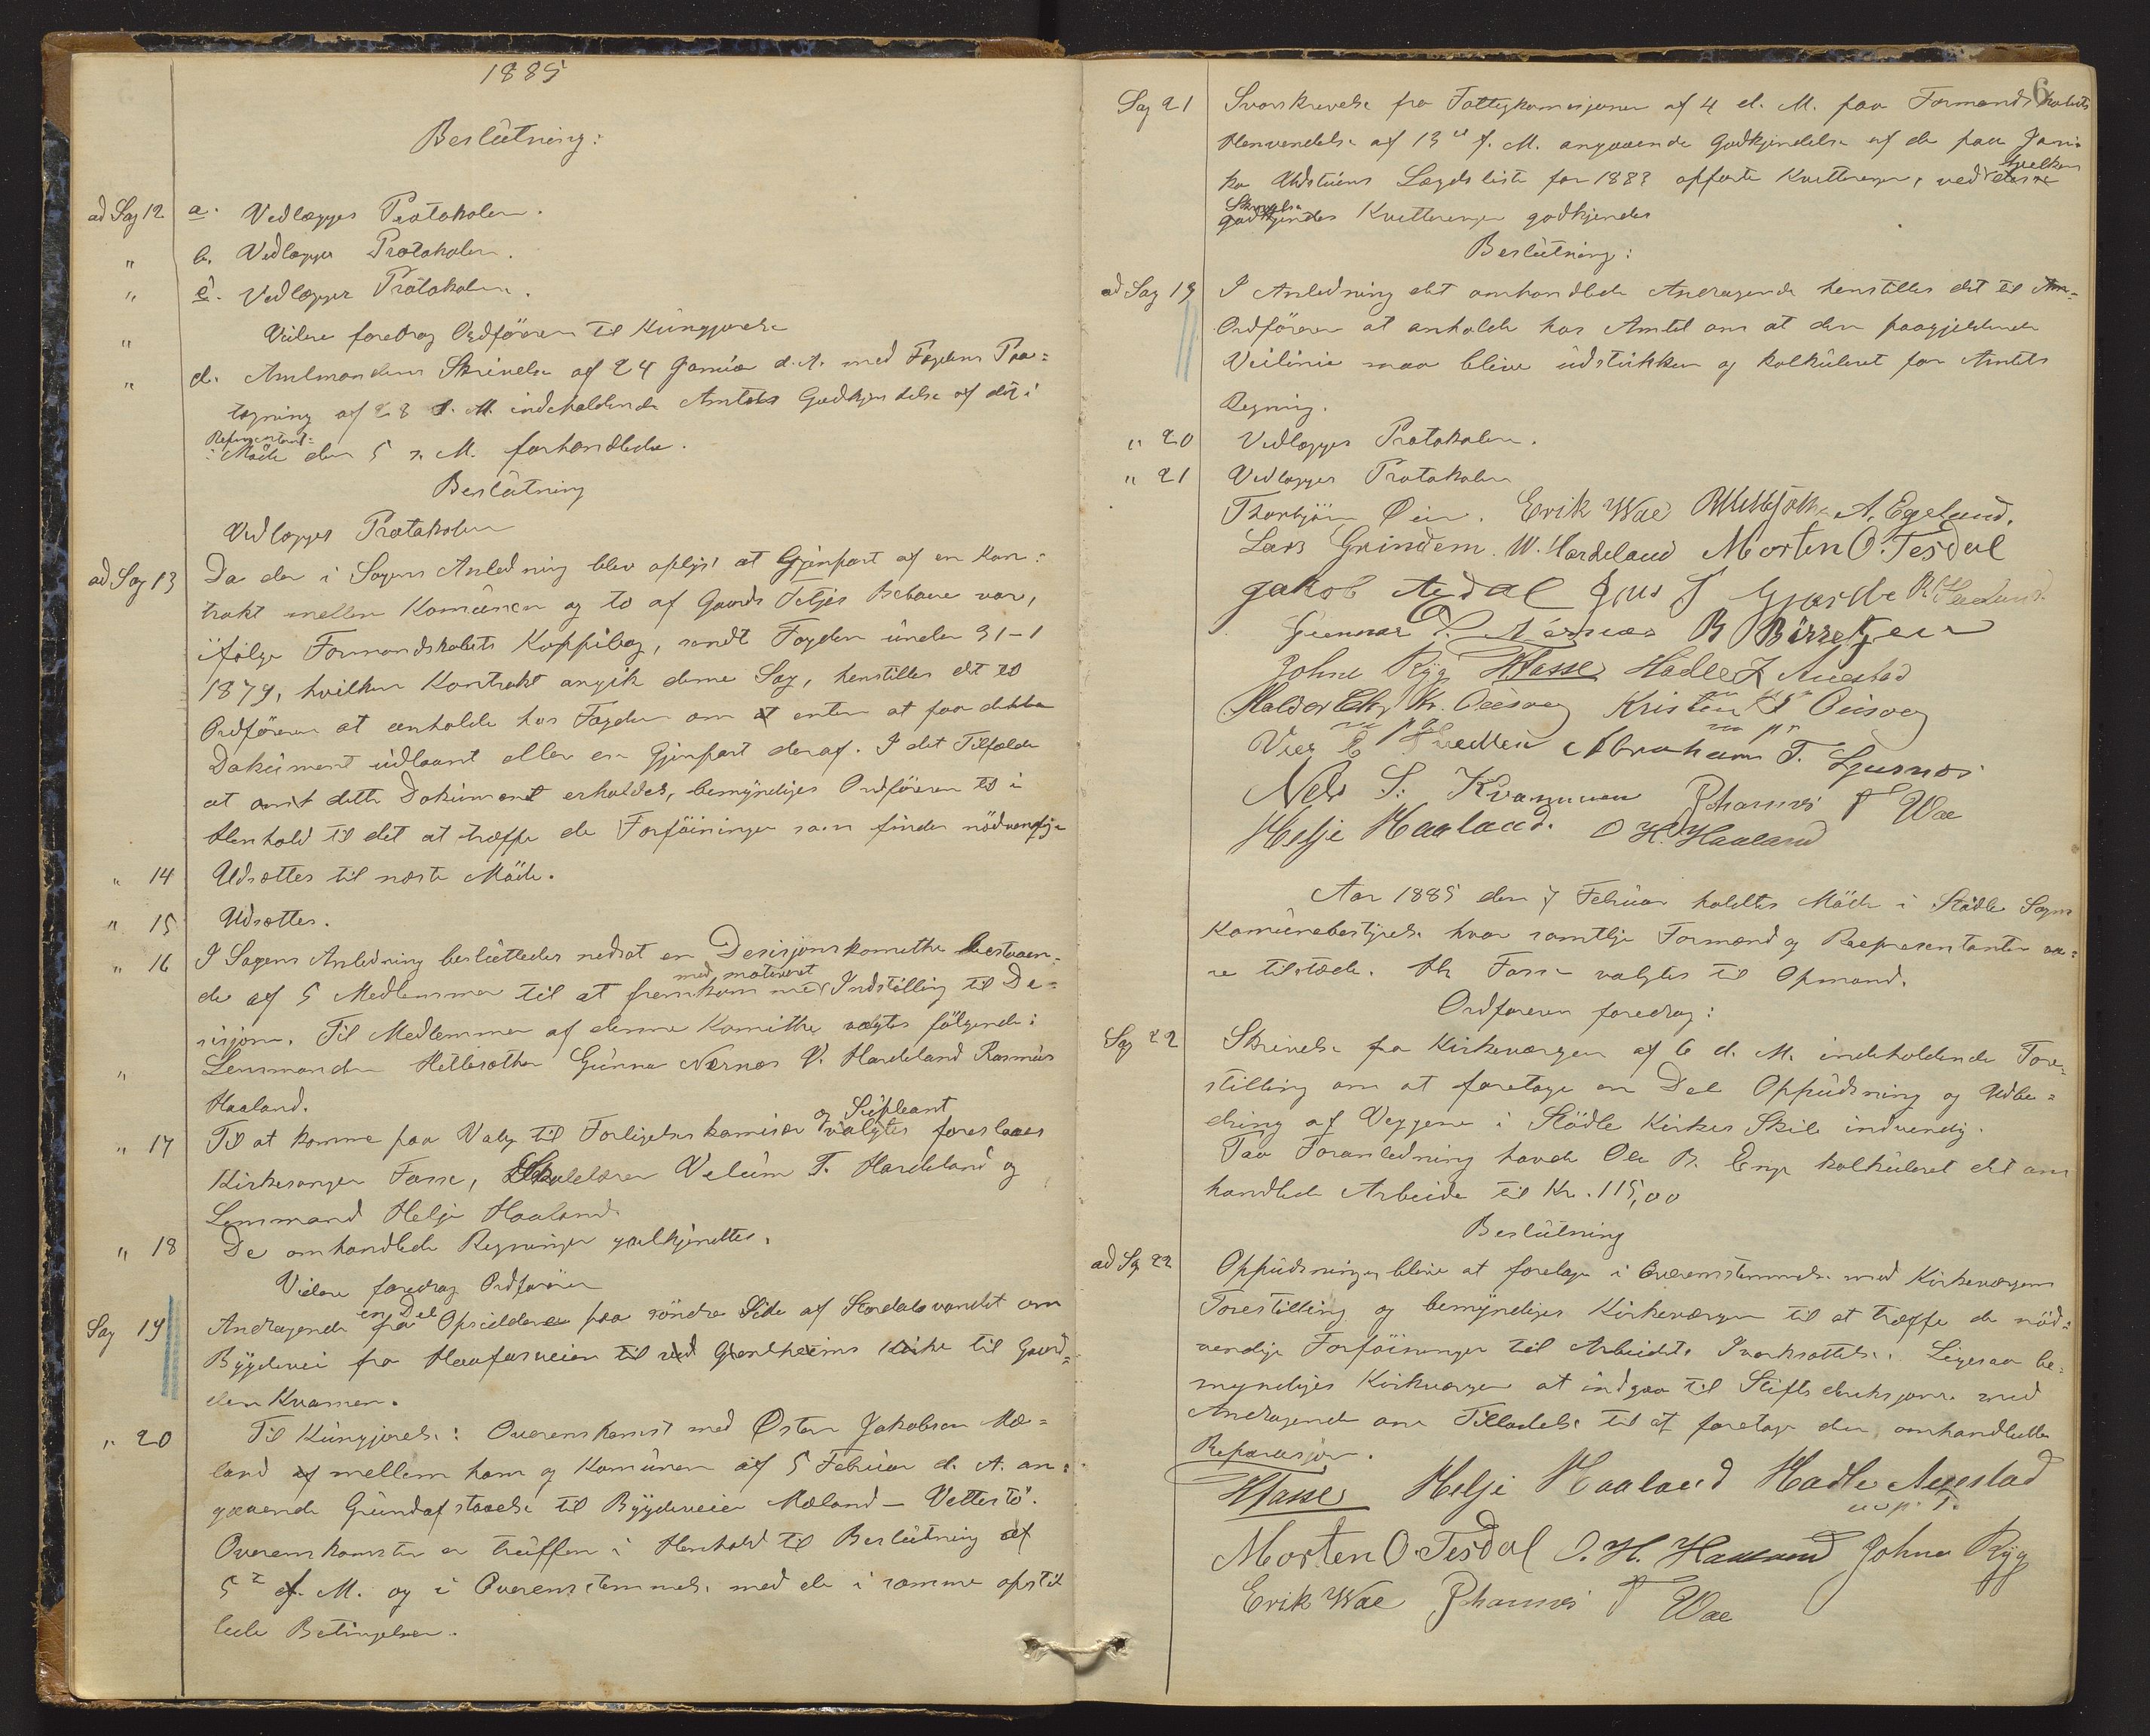 1885
Beslutning:
ad Sag 12 a. Vedlægges Protokolen.
" b. Vedlægges Protokolen.
" c. Vedlægges Protokolen.
" Videre foredrog Ordføreren til Kungjørelse
" d. Amtmandens Skrivelse af 24 Januar d. A. med Fogdens Paa=
tegning af 28 s. M. indeholdende Amtets Godkjendelse af det i
Representant=
Møde den 5 n. M. forhandlede.
Beslutning
Vedlægges Protokolen
ad Sag 13 Da der i Sagens Anledning blev oplyst at Gjenpart af en Kon=
trakt mellem Komunen og to af Gaards Teljes Beboere var,
ifølge Formandskabets Koppibog, sendt Fogden under 31-1
1879, hvilken Kontrakt angik denne Sag, henstilles det til
Ordføreren at anholde hos Fogden om at enten at faa dette
Dokument udlaant eller en Gjenpart deraf. I det Tilfælde
at dette Dokument erholdes, bemyndiges Ordføreren til i
Henhold til det at træffe de Forføininger som findes nödvendige
" 14 Udsættes til næste Möde.
" 15 Udsættes.
" 16 I Sagens Anledning besluttedes nedsat en Desisjonskomitthe bestaaen=
de af 5 Medlemmer til at fremkom med motiveret Indstilling til De=
sisjon. Til Medlemmer af denne Komitthe valgtes følgende:
" Lensmanden Helleisæther Gunnar Nernæs V. Hardeland Rasmus
Haaland.
" 17 Til at komme paa Valg til Forligelseskomisær og Supleant valgtes foreslaaes
Kirkesanger Fasse, Skolelærer Velum T. Hardeland og
Lensmand Helje Haaland
" 18 De omhandlede Regninger godkjendtes.
Videre foredrog Ordføreren
Sag 19 Andragende fra en Del Opsiddere paa söndre Side af Stordalsvandet om
Bygdevei fra Haafasveien til ved Gjerdheims Kirke til Gaar=
den Kvamen.
" 20 Til Kungjørelse: Overenskomst med Østen Jakobsen Mæ=
land af mellem ham og Komunen af 5 Februar d. A. an=
gaaende Grundafstaaelse til Bygdeveien Mæland - Vettestø.
Overenskomsten er truffen i Henhold til Beslutning af
5te f. M. og i Overensstemmelse med de i samme opstil
lede Betingelser.
6
Sag 21 Svarskrivelse fra Fattigkomisjonen af 4 d. M. paa Formandskabets
Henvendelse af 13de f. M. angaaende Godkjendelse af de paa Jani=
ke Udstuens Lægdsliste for 1883 opførte Kvitteringer, ved hvilken
Skrivelse Kvitteringer godkjendes
Beslutning:
ad Sag 19 I Anledning det omhandlede Andragende henstilles det til
Ordføreren at anholde hos Amtet om at den paagjeldende
Veilinie maa blive udstukken og kalkuleret for Amtets
Regning.
" 20 Vedlægges Protokolen.
" 21 Vedlægges Protokolen
Thorbjörn Öen. Erik Wae A. Egeland.
Lars Grindem. W. Hardeland Morten O. Tesdal
Jakob Aedal Jens J Gjærde R. Haaland
Gunnar O. Nernæs B Börretzen
Johne Ryg HFasse Hadle J Auestad
Haldor Chr. Kr. Öeisvog Kristen K Öeisvog
m p r m p r
Abraham T. Ljusnæs
Nels S. Kvammen Johannes T Wae
Helje Haaland. O H. Haaland
Aar 1885 den 7 Februar holdtes Möde i Stödle Sogns
Komunebestyrelse hvor samtlige Formænd og Representanter va=
re tilstæde. Hr Fasse valgtes til Opmand.
Ordføreren foredrog:
Sag 22 Skrivelse fra Kirkeværgen af 6 d. M. indeholdende Fore=
stilling om at foretage en Del Oppudsning og Udbe=
dring af Veggene i Stödle Kirkes Skib indvendig.
Paa Foranledning havde Ole B. Enge kalkuleret det om
handlede Arbeide til Kr. 115,00
Beslutning
ad Sag 22 Oppudsningen blive at foretage i Overensstemmelse med Kirkeværgens
Forestilling og bemyndiges Kirkeværgen til at træffe de nöd=
vendige Forföininger til Arbeidets Iverksættelse. Ligesaa be=
myndiges Kirkeværgen at indgaa til Stiftsdireksjonen med
Andragende om Tilladelse til at foretage den omhandlede
Reparasjon.
HFasse Helje Haaland Hadle Auestad
Morten O. Tesdal O. H. Haaland Johne Ryg
Erik Wae Johannes T Wae